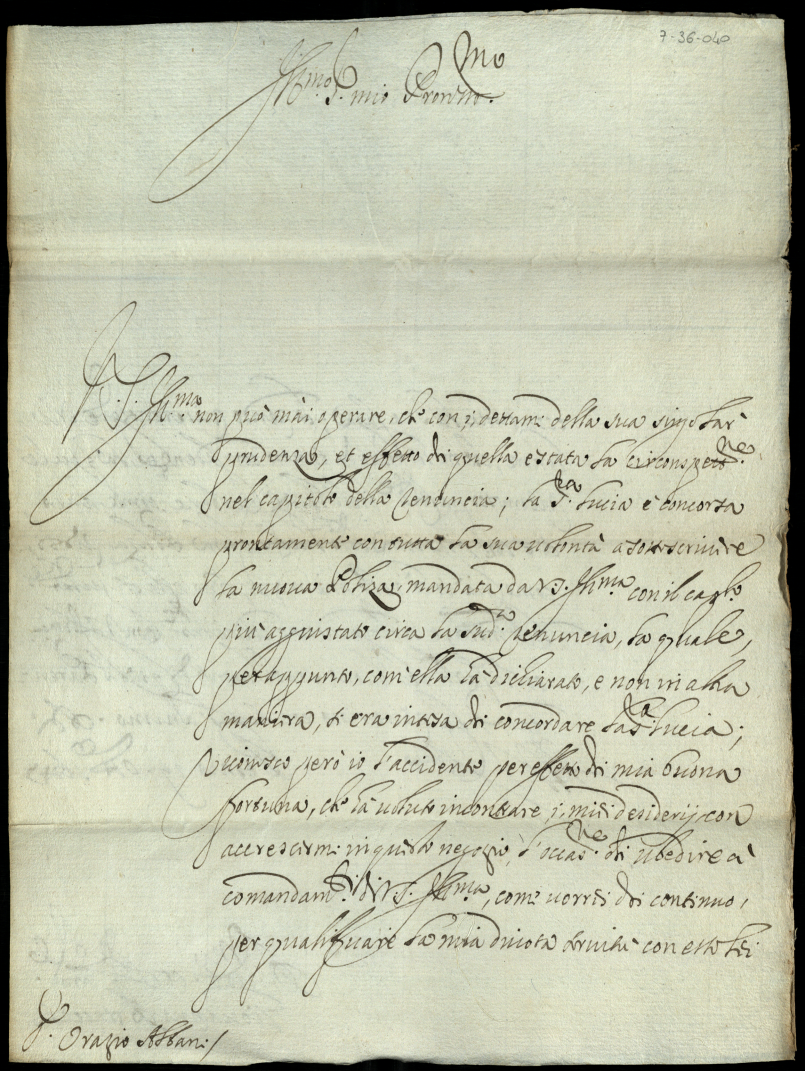 7-36-040
Ill.mo S.r mio P.rone Oss.mo
V. S. Ill.ma non può mai operare, che con i dettami della sua singolar
prudenza, et effetto di quella è stata la circonspett.ne
nel capitolo della renuncia; la S.ra Lucia è concorsa
prontamente con tutta la sua volontà a sottoscrivere
la nuova Poliza, mandata da V. S. Ill.ma con il cap.lo
più aggiustato circa la sud.a renuncia, la quale,
per appunto, com'ella ha dichiarato, e non in altra
maniera, si era intesa di concordare la S.ra Lucia;
però io l'accidente per effetto di mia buona
fortuna, che ha voluto incontrare i miei desiderij, con
accrescermi in questo negozio, l'occas.ne di ubedire a'
comandam.ti di V. S. Ill.ma, come vorrei di continuo,
per qualificare la mia divota servitù con esso lei
S. Orazio Albani